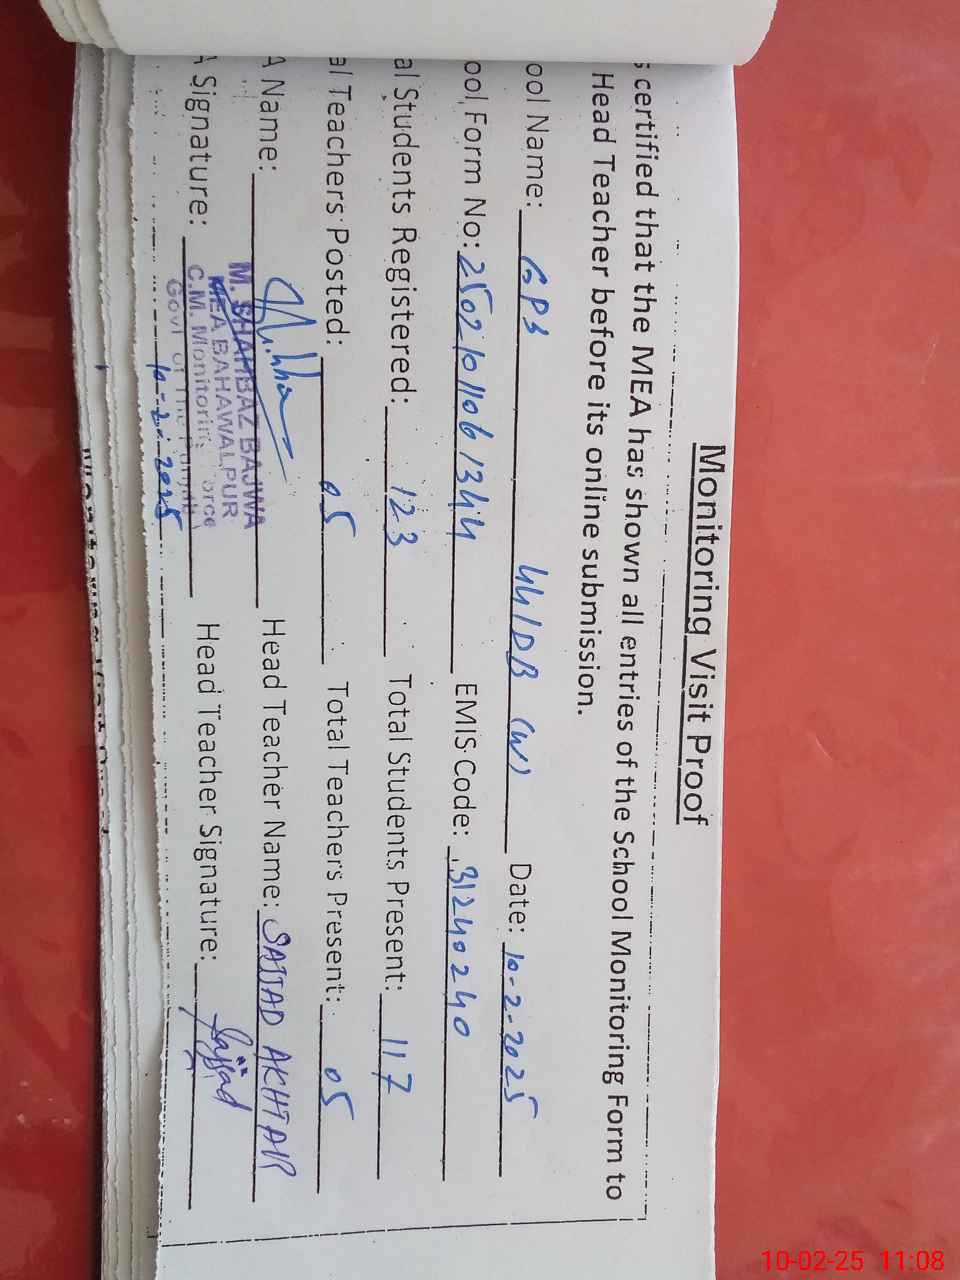 Monitoring Visit Proof
s certified that the MEA has shown all entries of the School Monitoring Form to
Head Teacher before its online submission.
ool Name: GPS 44/DB (W) Date: 10-2-2025
ool Form No: 25021011061344 EMIS Code: 31240240
al Students Registered: 123 Total Students Present: 117
al Teachers Posted: 05 Total Teachers Present: 05
A Name: Head Teacher Name: SAJJAD AKHTAR
M. SHAHBAZ BAJWA
MEA BAHAWALPUR
A Signature: Head Teacher Signature: Sajjad
C.M. Monitoring Force
Govt of The Punjab
10-2-2025
10-02-25 11:08